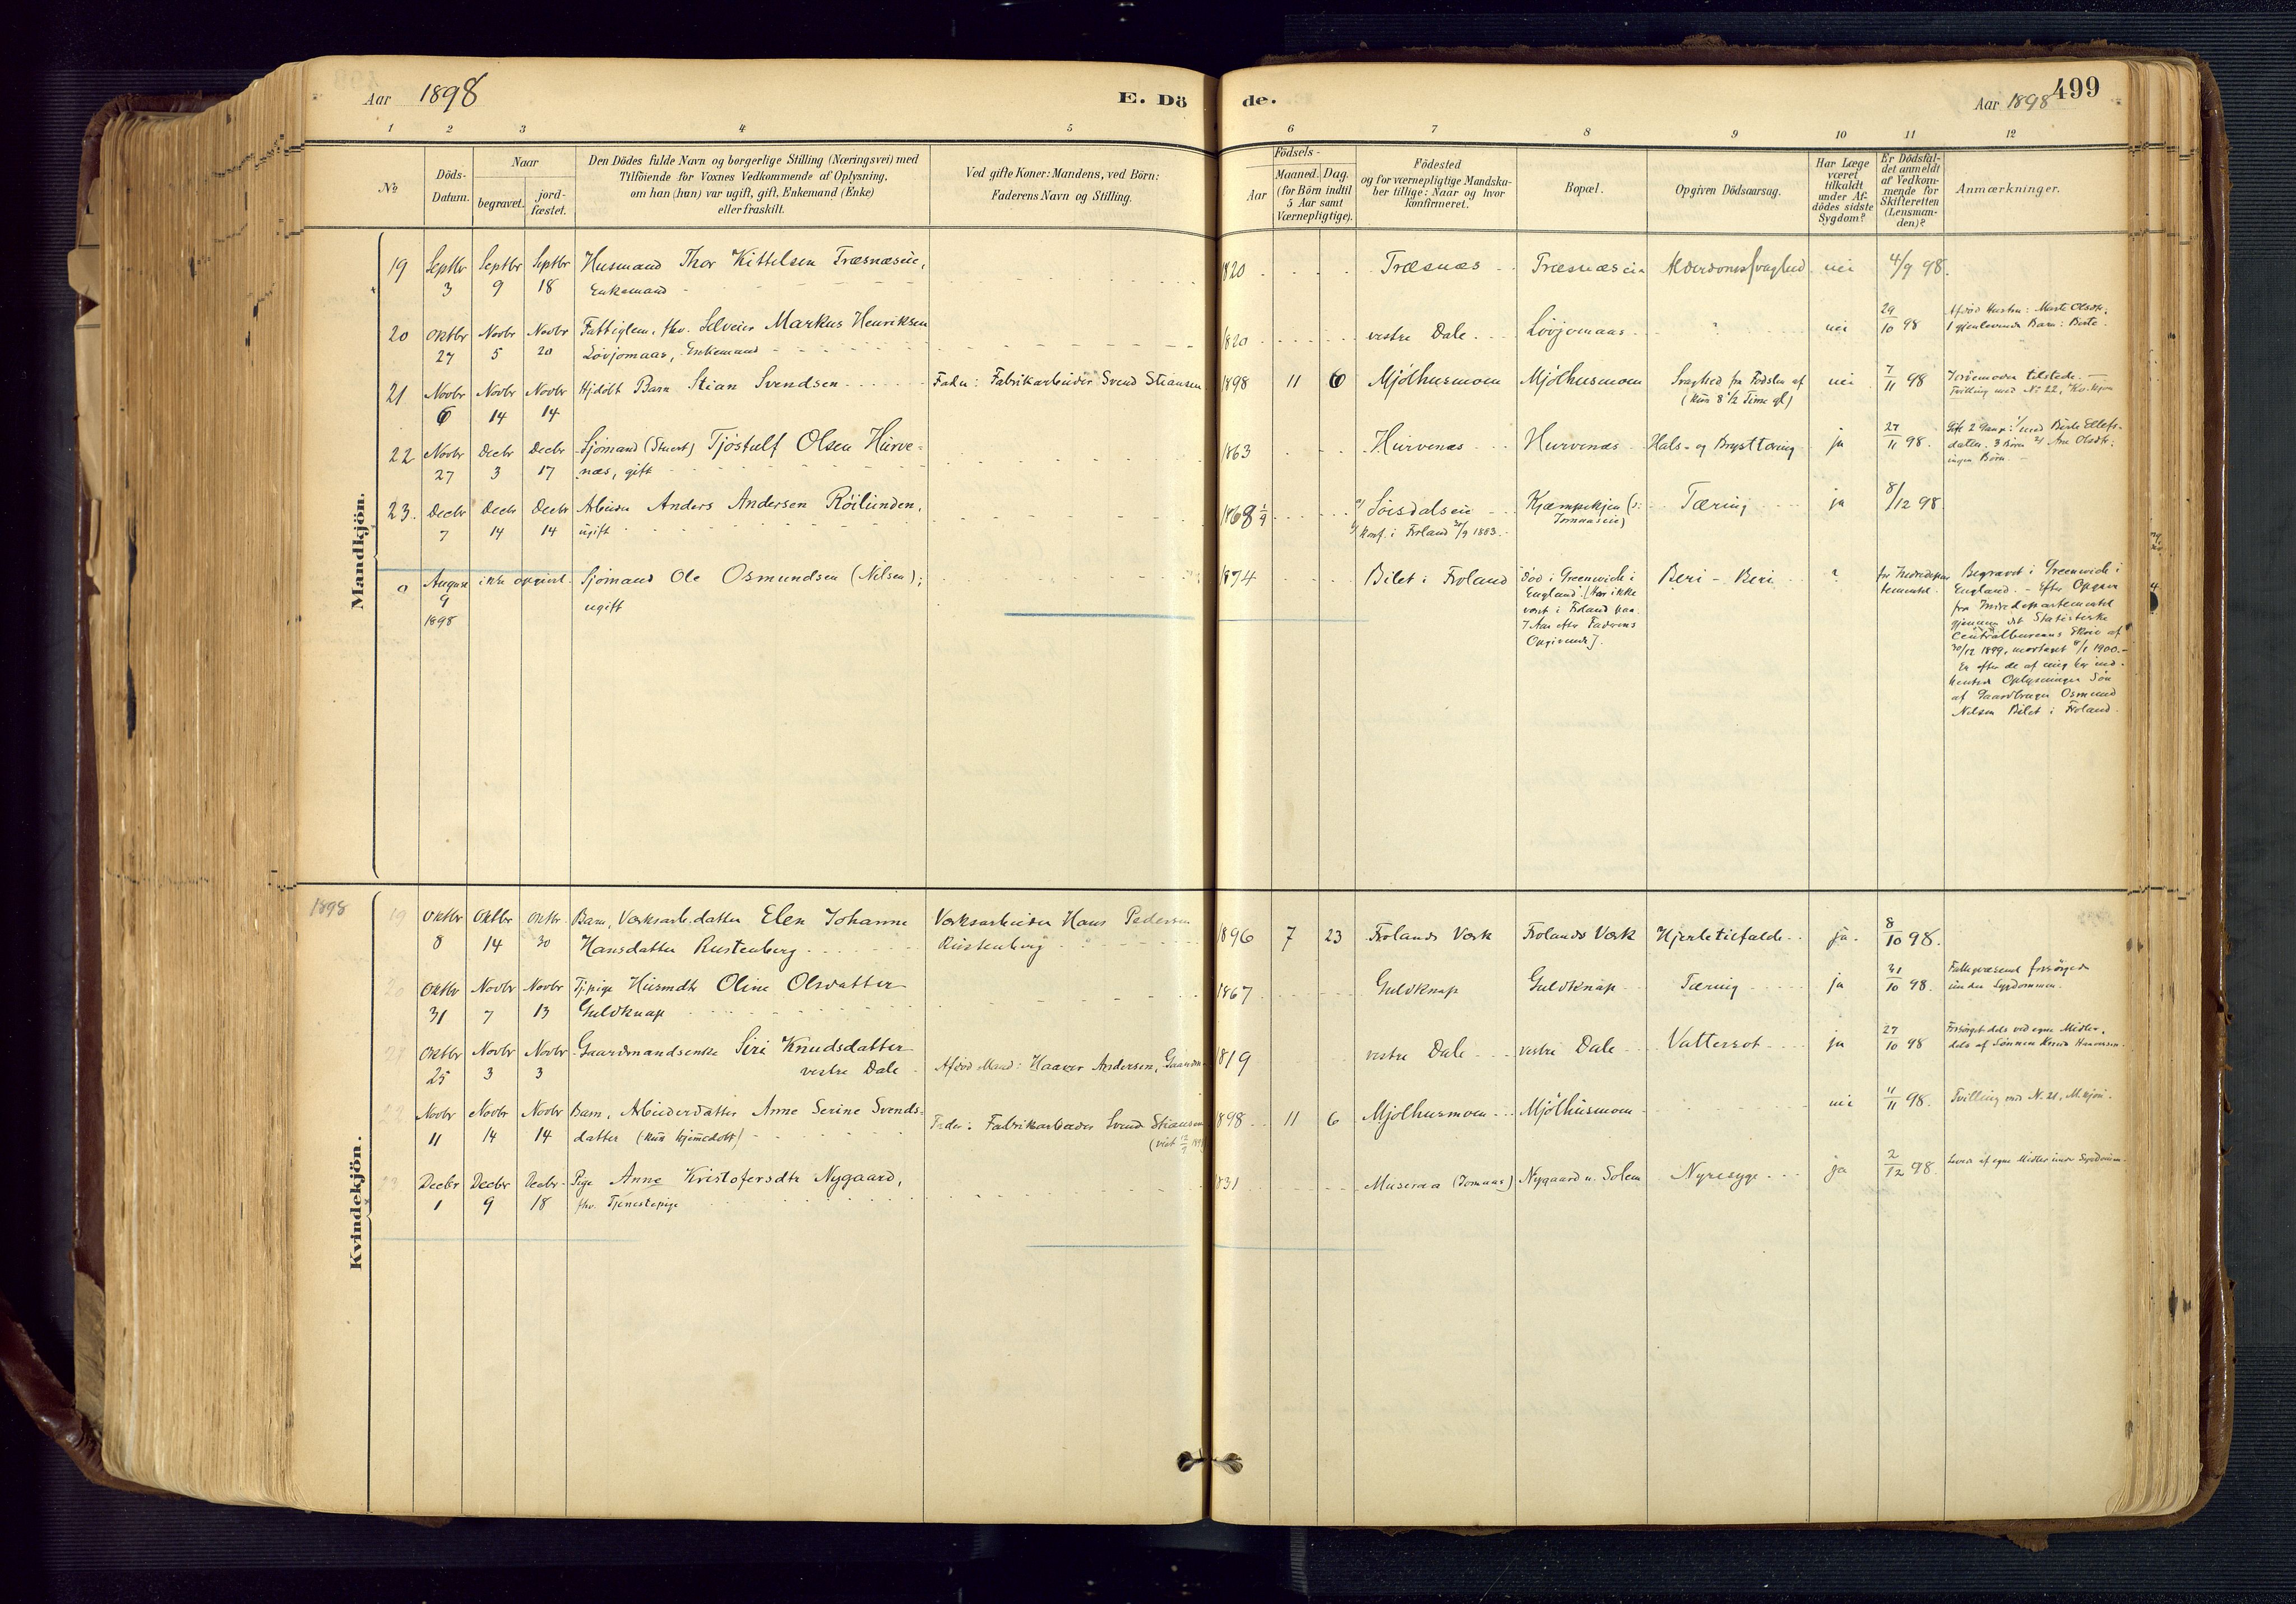 Aar 1898
E. Dö
de.
Aar 1898
499
1 2 3 4 5 6 7 8 9 10 11 12
No
Döds-
Datum.
Naar
begravet.
jord-
fæstet.
Den Dödes fulde Navn og borgerlige Stilling (Næringsvei) med
Tilföiende for Voxnes Vedkommende af Oplysning,
om han (hun) var ugift, gift, Enkemand (Enke)
eller fraskilt.
Ved gifte Koner: Mandens, ved Börn:
Faderens Navn og Stilling.
Födsels-
Aar
Maaned. Dag.
(for Börn indtil
5 Aar samt
Værnepligtige).
Födested
og for værnepligtige Mandska-
ber tillige: Naar og hvor
konfirmeret.
Bopæl.
Opgiven Dödsaarsag.
Har Læge
været
tilkaldt
under Af-
dödes sidste
Sygdom?
Er Dödsfal-
det anmeldt
af Vedkom-
mende for
Skifteretten
(Lensman-
den)?
Anmærkninger.
Mandkjön.
19 Septbr Septbr Septbr Husmand Thor Kittelsen Træsnæseie, 1820 Træsnæs Træsnæseie Alderdomssvaghed nei 4/9 98.
3 9 18 Enkemand
20 Oktbr Novbr Novbr Fattiglem, fhv. Selveier Markus Henriksen 1820 vestre Dale Lövjomaas " nei 29/10 98 Afdöd Hustru: Marte Olsdtr.
27 5 20 Lövjomaas, Enkemand 1 gjenlevende Barn: Berte.
21 Novbr Novbr Novbr Hjdöbt Barn Stian Svendsen Fader: Fabrikarbeider Svend Stiansen 1898 11 6 Mjölhusmoen Mjölhusmoen Svaghed fra Födslen af nei 7/11 98 Jordemoder tilstede.
6 14 14 (kun 8 1/2 Time gl) Tvilling med No 22, Kv.kjön
22 Novbr Decbr Decbr Sjömand (Stuert) Tjöstulf Olsen Hurve- 1863 Hurvenæs Hurvenæs Hals- og Brysttæring ja 27/11 98. Gift 2 Gange: 1/ med Berte Ellefs-
27 3 17 næs, gift datter, 3 Börn 2/ Ane Olsdtr.
ingen Börn.
23. Decbr Decbr Decbr Arbeider Anders Andersen Röilunden, 1868 1/9 a/ Soisdalseie Kjæmpekjen (: Tæring ja 8/12 98
7 14 14 ugift b/ Konf. i Froland 30/9 1883. Tomaaseie)
0 August ikke opgivet. Sjömand Ole Osmundsen (Nilsen); 1874 Bilet i Froland Död i Greenwich i Beri-Beri ? for Indredepar- Begravet i Greenwich i
9 ugift England. [Har ikke tementet. England. - Efter Opgave
1898 været i Froland paa fra Indredepartementet
7 Aar efter Faderens gjennem det Statistiske
Opgivende]. Centralbureaus Skriv af
30/12 1899, mottaget 8/1 1900.
Er efter de af mig her ind-
hentede Oplysninger Sön
af Gaardbruger Osmund
Nilsen Bilet i Froland.
Kvindekjön.
1898
19 Oktbr Oktbr Oktbr Barn, Værksarb.datter Elen Johanne Værksarbeider Hans Pedersen 1896 7 23 Frolands Værk Frolands Værk Hjertetilfælde ja. 8/10 98.
8 14 30 Hansdatter Rustenberg Rustenberg
20 Oktbr Novbr Novbr Tj.pige Husmdtr Oline Olsdatter 1867 Guldknap Guldknap Tæring ja 31/10 98. Fattigvæsenet forsörgede
31 7 13 Guldknap under Sygdommen.
21 Oktbr Novbr Novbr Gaardmandsenke Siri Knudsdatter Afdöd Mand: Haaver Andersen, Gaardm. 1819 vestre Dale vestre Dale Vattersot ja 27/10 98 Forsörget dels ved egne Midler,
25 3 3 vestre Dale dels af Sönnen Knud Haaversen.
22 Novbr Novbr Novbr Barn, Arbeiderdatter Anne Serine Svends- Fader: Fabrikarbeider Svend Stiansen 1898 11 6 Mjölhusmoen Mjölhusmoen nei 11/11 98. Tvilling med N. 21, M.kjön.
11 14 14 datter (kun hjemmedöbt)
23 Decbr Decbr Decbr Pige Anne Kristofersdtr Nygaard, 1831 Museraa (Tomaas) Nygaard u. Solem Nyresyge ja 2/12 98. Leved af egne Midler under Sygdommen.
1 9 18 fhv. Tjenestepige